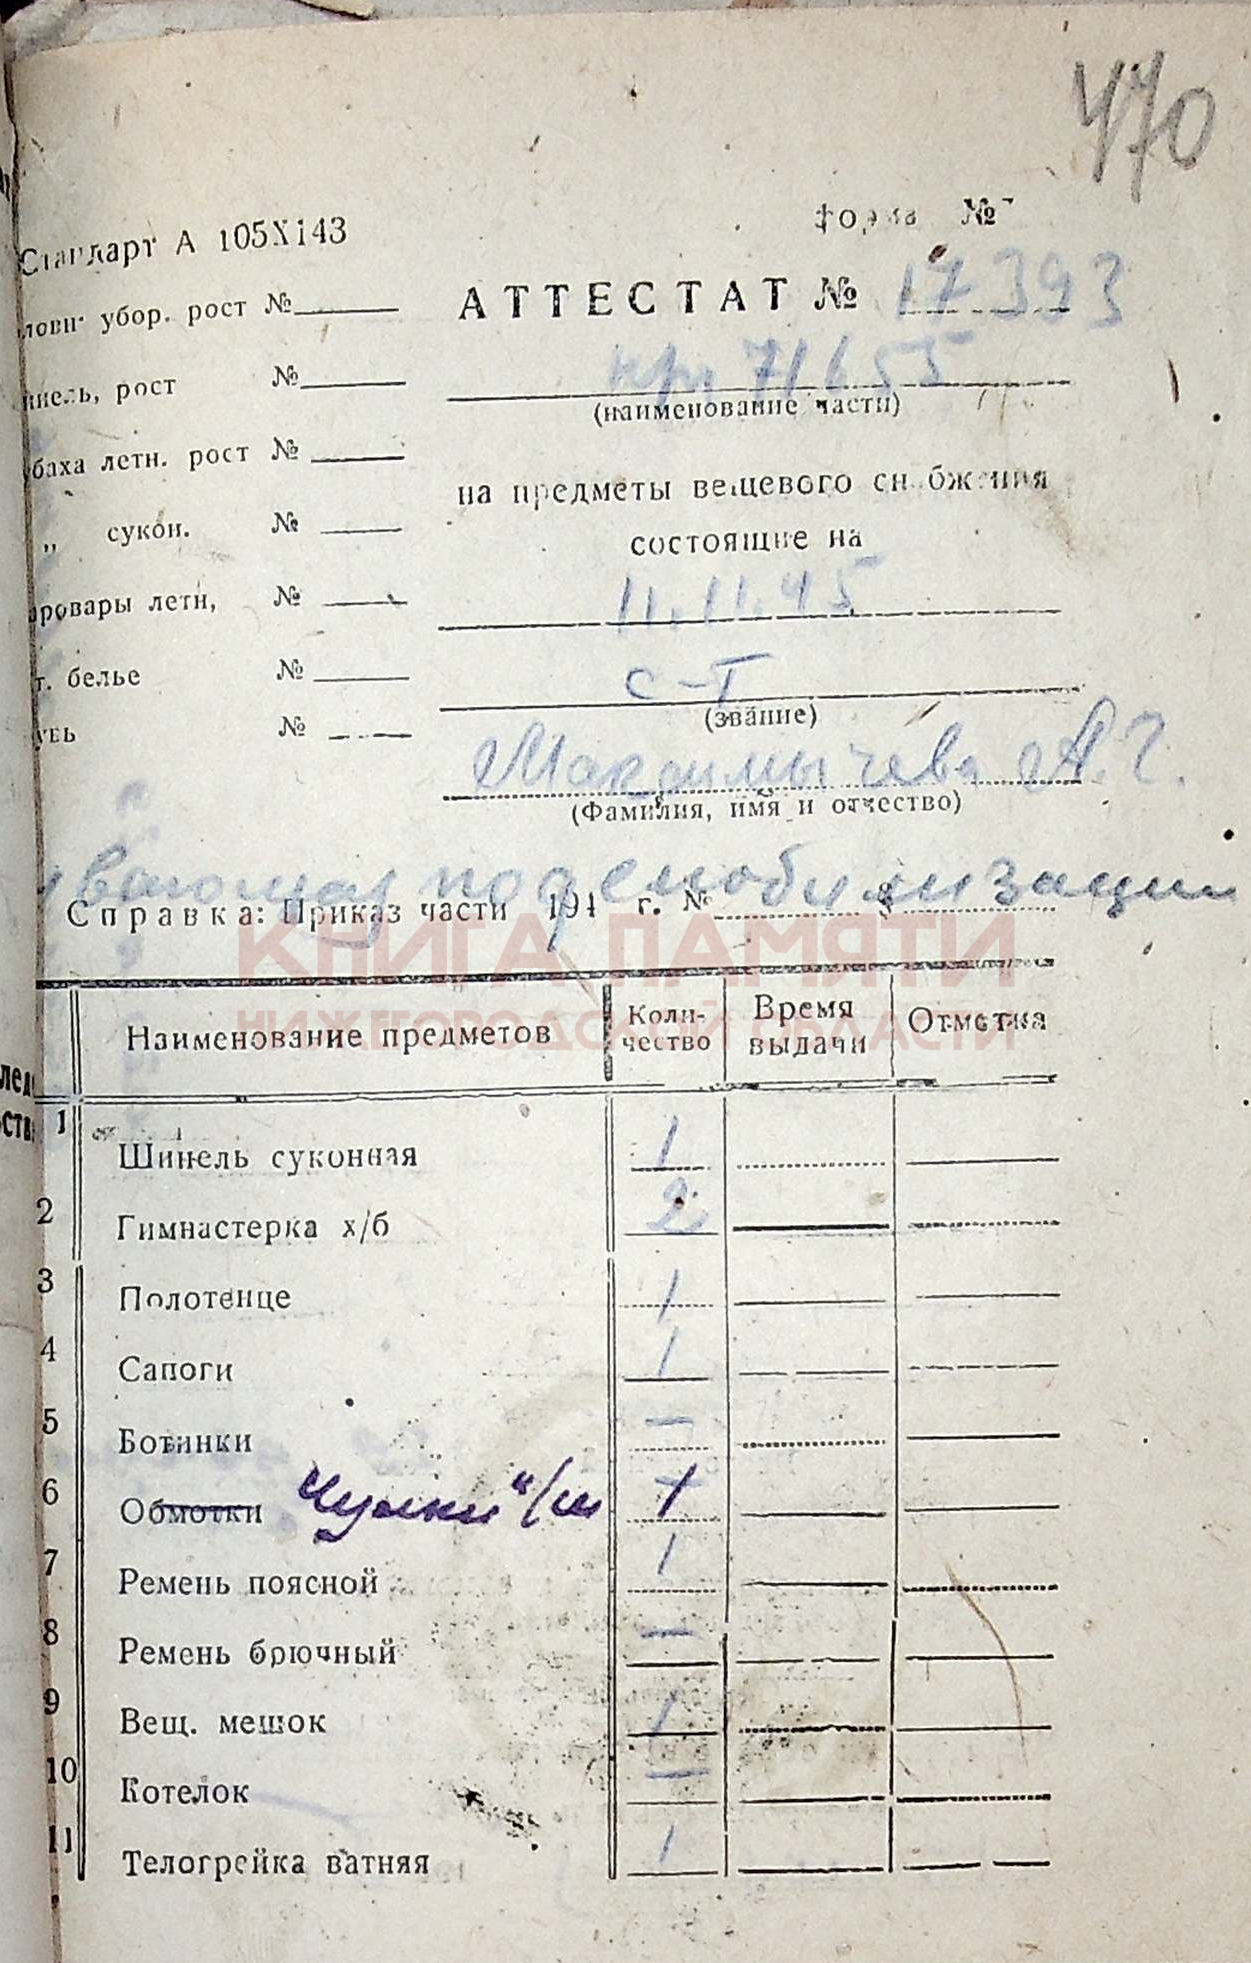 470
Стандарт А 105Х143
Форма №
ловн убор. рост №
АТТЕСТАТ № 17393
71655
инель, рост №
(наименование части)
баха летн. рост №
на предметы вещевого снабжения
„ сукон. №
состоящие на
аровары летн, №
11.11.45
т. белье №
с-т
(звание)
увь №
Максимычева А. Г.
(Фамилия, имя и отчество)
по демобилизации
Справка: Приказ части 194 г. № §
КНИГА ПАМЯТИ
НИЖЕГОРОДСКОЙ ОБЛАСТИ
Наименование предметов Коли-чество Время выдачи Отметка
1 Шинель суконная 1
2 Гимнастерка х/б 2
3 Полотенце 1
4 Сапоги 1
5 Ботинки —
6 Обмотки Чулки 1
7 Ремень поясной 1
8 Ремень брючный —
9 Вещ. мешок 1
10 Котелок —
11 Телогрейка ватняя 1